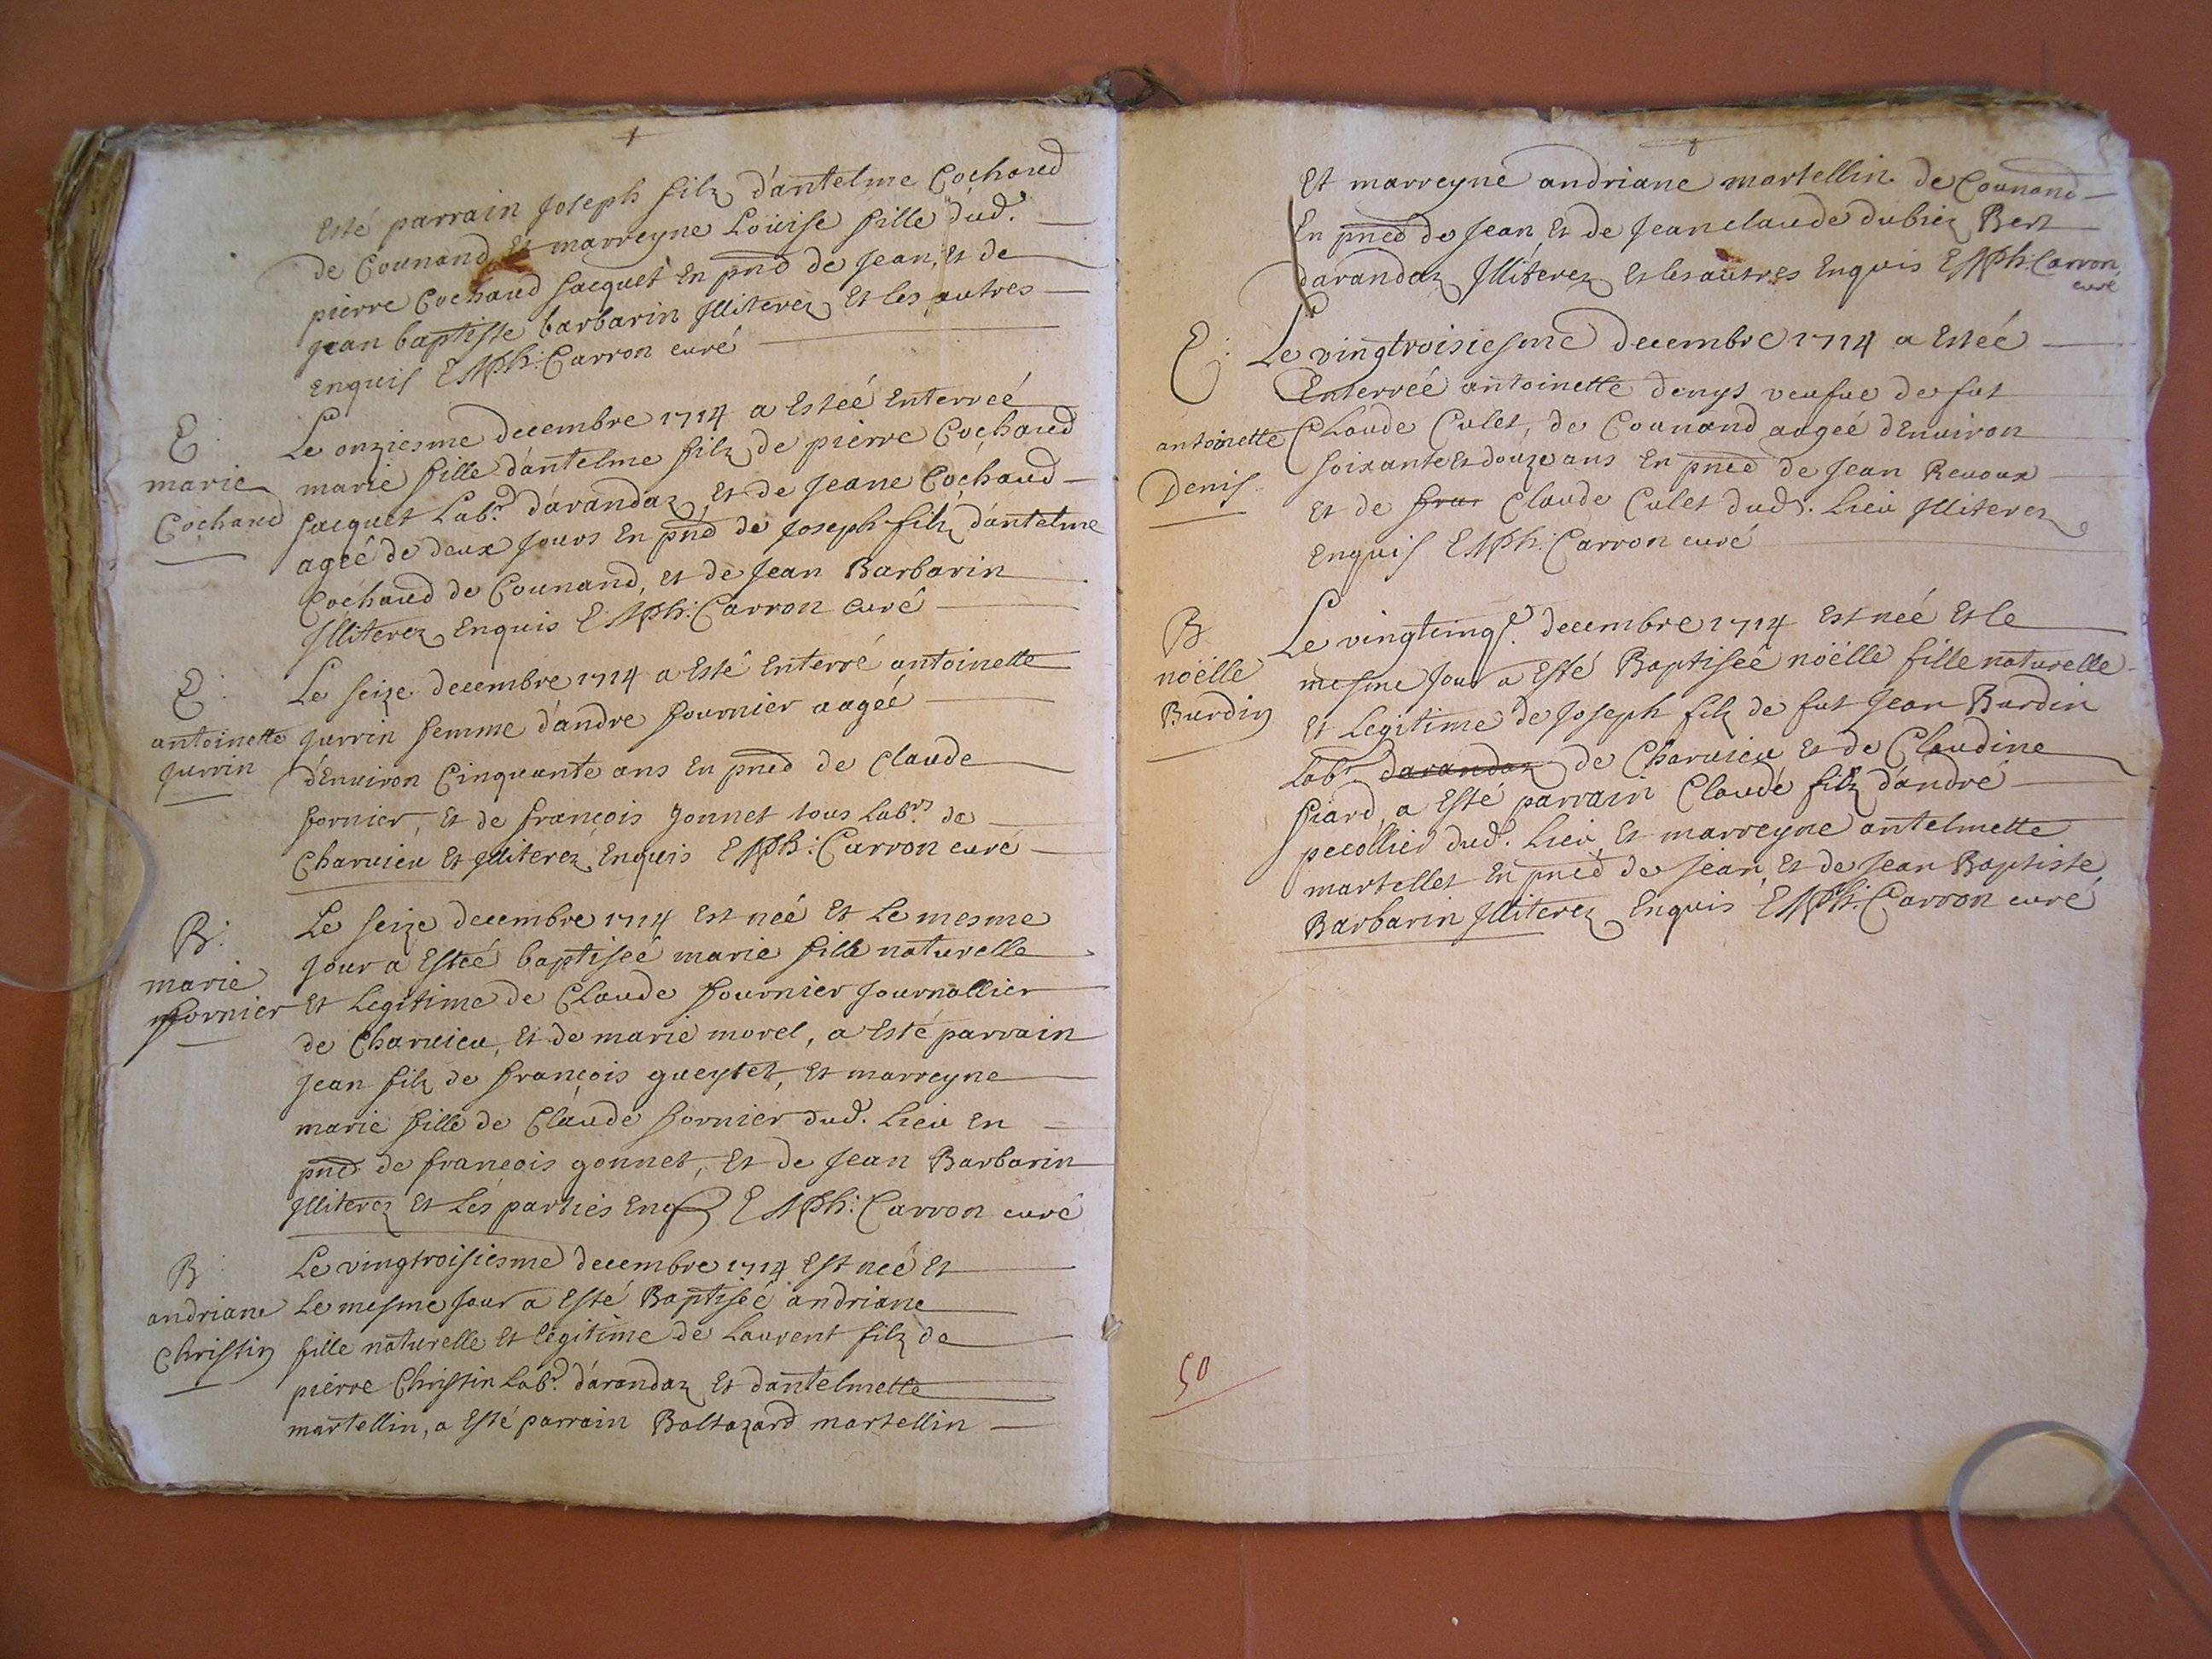 Esté parrain Joseph filz d'antelme Cochaud
de Counand et marreyne Loüise fille dud.
pierre Cochaud Jacquet En pñce de Jean, et de
Jean baptiste barbarin Illiterez Et les autres
Enquis E Mph: Carron curé
E:
marie
Cochaud
Le onziesme decembre 1714 a Estéé Enterréé
marie fille d'antelme filz de pierre Cochaud
Jacquet Lab.r d'arandaz, et de Jeane Cochaud
agéé de deux Jours En pñce de Joseph filz d'antelme
Cochaud de Counand, et de Jean Barbarin
Illiterez Enquis E Mph: Carron Curé
E:
antoinette
Jurrin
Le seize decembre 1714 a Esté Enterré antoinette
Jurrin femme d'andre fournier aagéé
d'Enuiron Cinquante ans En pñce de Claude
fornier, Et de françois Jonnet tous Lab.rs de
Charuieu Et Illiterez Enquis E Mph: Carron curé
B:
marie
fornier
Le seize decembre 1714 est néé Et Le mesme
Jour a Estéé baptiséé marie fille naturelle
Et Legitime de Claude fournier Journallier
de Charuieu, Et de marie morel, a Esté parrain
Jean filz de françois gueytet, Et marreyne
marie fille de Claude fornier dud. Lieu En
pñce de françois gonnet, Et de Jean Barbarin
Illiterez Et Les parties Enq E Mph: Carron curé
B
andriane
Christin
Le vingtroisiesme decembre 1714 Est néé Et
Le mesme Jour a Esté Baptiséé andriane
fille naturelle Et legitime de Laurent filz de
pierre Christin Lab.r d'arandaz Et dantelmette
martellin, a Esté parrain Baltazard martellin
Et marreyne andriane martellin de Counand
En pñce de Jean Et de Jeanclaude dubiez Bert
darandaz Illiterez Et les autres Enquis E Mph: Carron
curé
E:
antoinette
Denis
Le vingtroisiesme decembre 1714 a Estéé
Enterréé antoinette denys veufue de fut
Claude Culet, de Counand aagéé d'Enuiron
soixante et douze ans En pñce de Jean Reuoux
Et de fran Claude Culet dud. Lieu Illiterez
Enquis E Mph: Carron curé
B
noëlle
Burdin
Le vingtcinq.e decembre 1714 Est néé Et le
mesme Jour a Esté Baptiséé noëlle fille naturelle
Et Legitime de Joseph filz de fut Jean Burdin
Lab.r darandaz de Charuieu Et de Claudine
Siard, a Esté parrain Claude filz d'andré
pecollier dud. Lieu, Et marreyne antelmette
martellet En pñce de Jean, Et de Jean Baptiste
Barbarin Illiterez Enquis E Mph: Carron curé
50